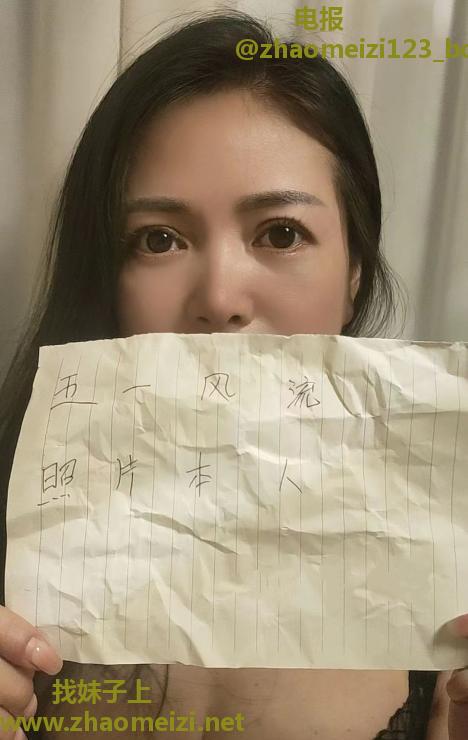 电报
@zhaomeizi123_bo
五一风流
照片本人
找妹子上
www.zhaomeizi.net